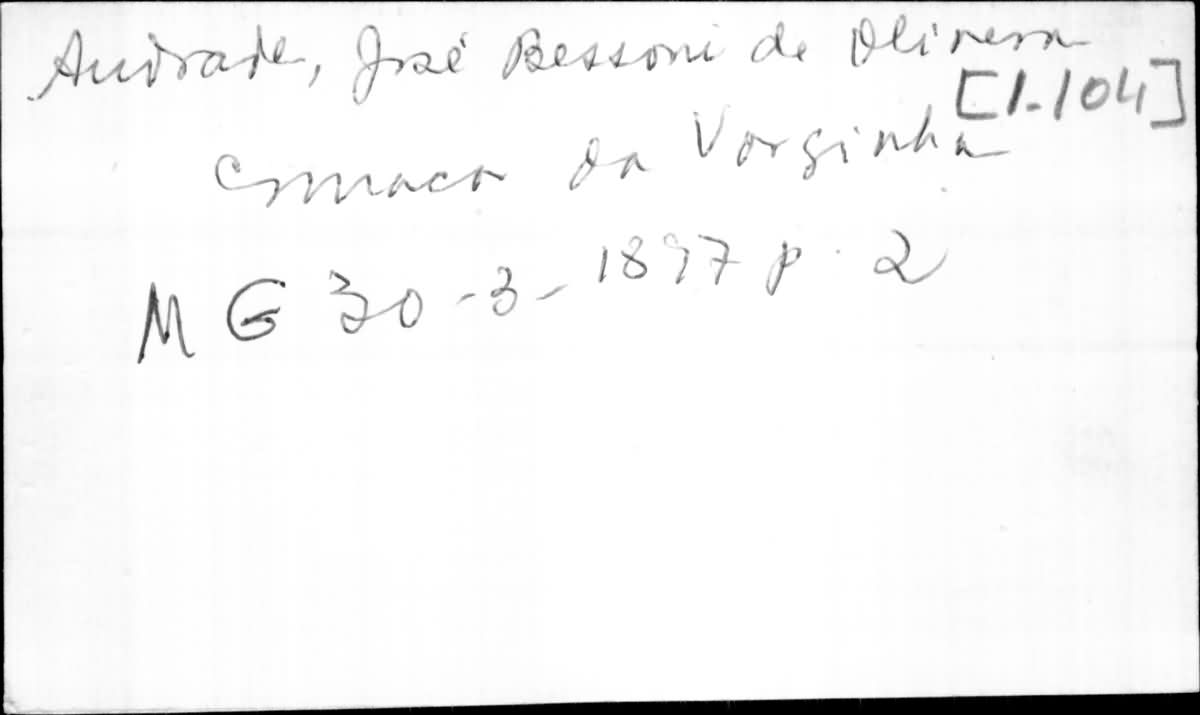 Andrade, José Bessoni de Oliveira
[1.104]
Comarca da Varginha
MG 30-3-1897 p. 2